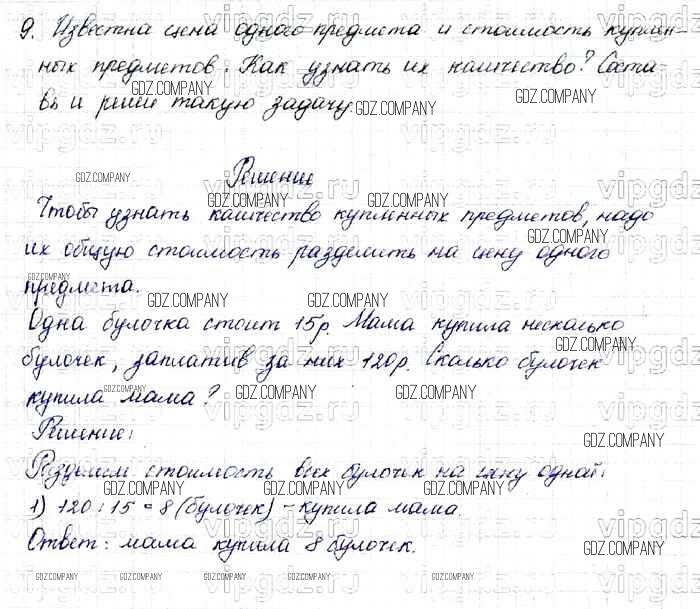 9. Известна цена одного предмета и стоимость куплен-
ных предметов. Как узнать их количество? Соста-
вь и реши такую задачу.
GDZ.COMPANY
GDZ.COMPANY
GDZ.COMPANY
Решение
vipgdz.ru
Чтобы узнать количество купленных предметов, надо
их общую стоимость разделить на цену одного
предмета.
GDZ.COMPANY
Одна булочка стоит 15р. Мама купила несколько
булочек, заплатив за них 120р. Сколько булочек
купила мама?
GDZ.COMPANY
Решение:
Разделим стоимость всех булочек на цену одной:
1) 120 : 15 = 8 (булочек) - купила мама
Ответ: мама купила 8 булочек.
GDZ.COMPANY GDZ.COMPANY GDZ.COMPANY GDZ.COMPANY GDZ.COMPANY